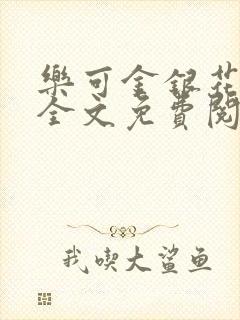 樂可金銀花
全文免費閱
我喫大鯊鱼